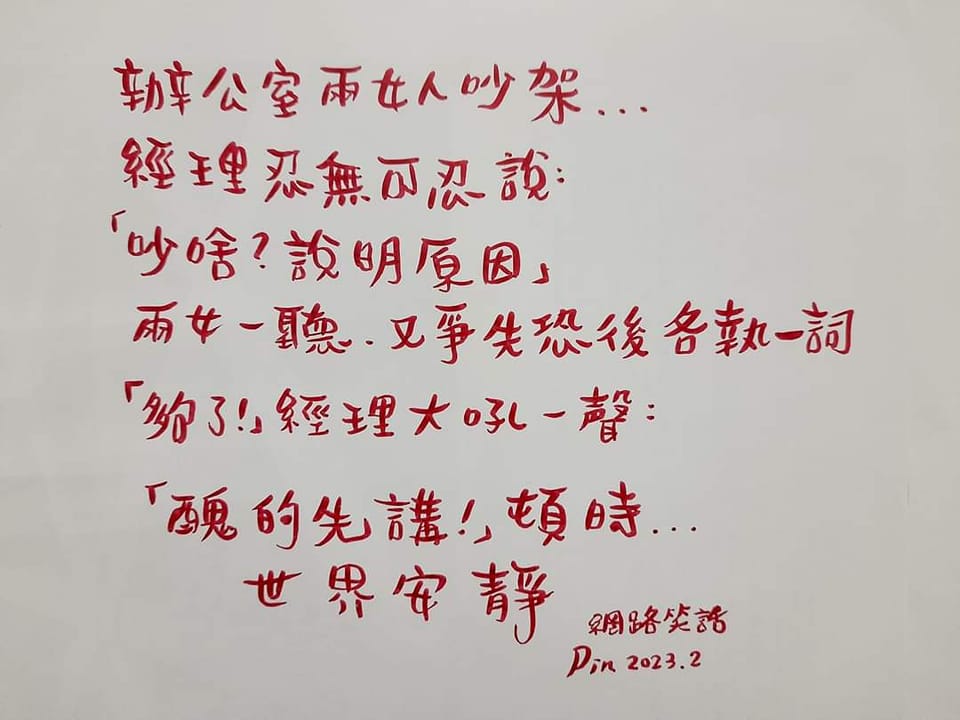 辦公室兩女人吵架...
經理忍無可忍說:
「吵啥?說明原因」
兩女一聽.又爭先恐後各執一詞
「夠了!」經理大吼一聲:
「醜的先講!」頓時...
世界安靜
網路笑話
Pin 2023.2